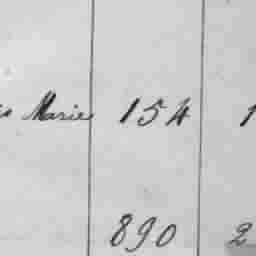 Marie 154 1
890 2